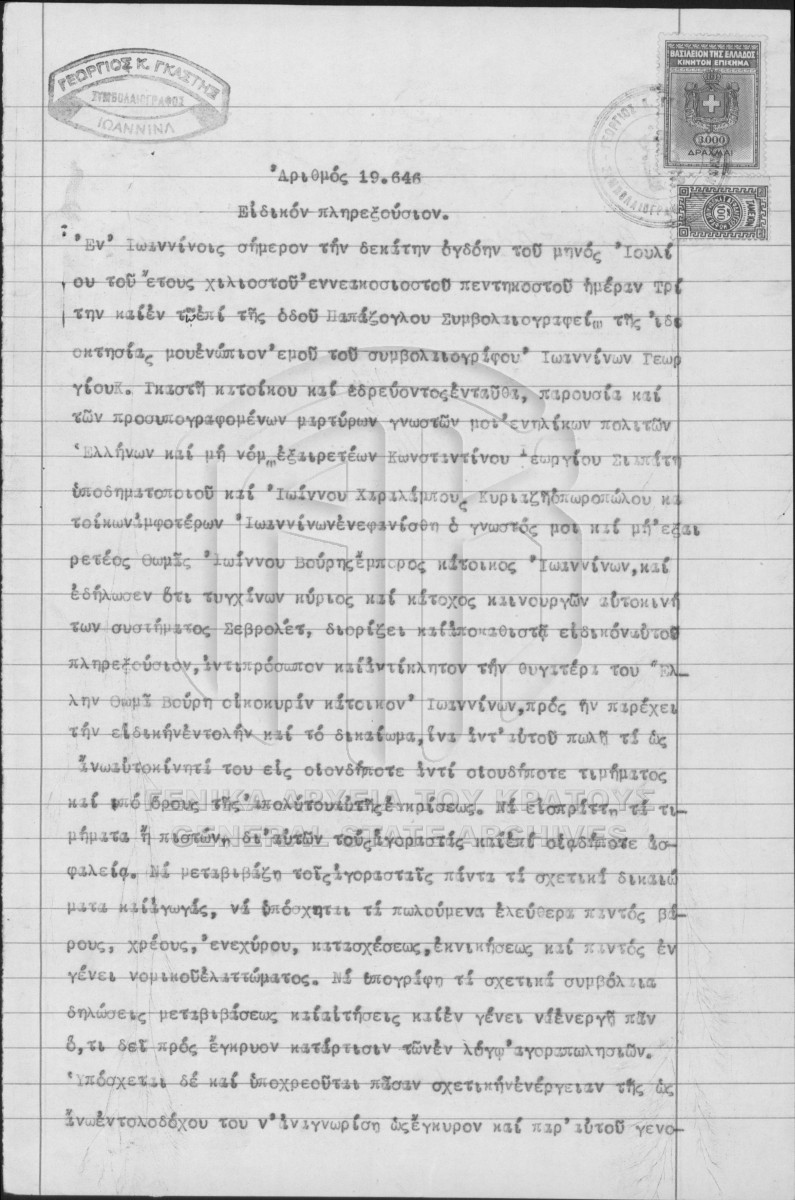 ΓΕΩΡΓΙΟΣ Κ. ΓΚΑΣΤΗΣ
ΣΥΜΒΟΛΑΙΟΓΡΑΦΟΣ
ΙΩΑΝΝΙΝΑ
ΒΑΣΙΛΕΙΟΝ ΤΗΣ ΕΛΛΑΔΟΣ
ΚΙΝΗΤΟΝ ΕΠΙΣΗΜΑ
3.000
ΔΡΑΧΜΑΙ
ΤΑΜΕΙΟΝ
100
Ἀριθμός 19.646
Εἰδικόν πληρεξούσιον.
Ἐν Ἰωαννίνοις σήμερον τήν δεκάτην ὀγδόην τοῦ μηνός Ἰουλί
ου τοῦ ἔτους χιλιοστοῦ ἐννεακοσιοστοῦ πεντηκοστοῦ ἡμέραν Τρί
την καί ἐν τῷ ἐπί τῆς ὁδοῦ Παπάζογλου Συμβολαιογραφείῳ τῆς ἰδι
οκτησίας μου ἐνώπιον ἐμοῦ τοῦ συμβολαιογράφου Ἰωαννίνων Γεωρ
γίου Κ. Γκαστῆ κατοίκου καί ἑδρεύοντος ἐνταῦθα, παρουσία καί
τῶν προσυπογραφομένων μαρτύρων γνωστῶν μοι ἐνηλίκων πολιτῶν
Ἑλλήνων καί μή νόμῳ ἐξαιρετέων Κωνσταντίνου Γεωργίου Σιαπάτη
ὑποδηματοποιοῦ καί Ἰωάννου Χαραλάμπους Κυριαζῆ ὀπωροπώλου κα
τοίκων ἀμφοτέρων Ἰωαννίνων ἐνεφανίσθη ὁ γνωστός μοι καί μή ἐξαι
ρετέος Θωμᾶς Ἰωάννου Βούρης ἔμπορος κάτοικος Ἰωαννίνων, καί
ἐδήλωσεν ὅτι τυγχάνων κύριος καί κάτοχος καινουργῶν αὐτοκινή
των συστήματος Σεβρολέτ, διορίζει καί ἀποκαθιστᾷ εἰδικόν αὐτοῦ
πληρεξούσιον, ἀντιπρόσωπον καί ἀντίκλητον τήν θυγατέρα του Ἕλ-
λην Θωμᾶ Βούρη οἰκοκυράν κάτοικον Ἰωαννίνων, πρός ἥν παρέχει
τήν εἰδικήν ἐντολήν καί τό δικαίωμα, ἵνα ἀντ' αὐτοῦ πωλῇ τά ὡς
ἄνω αὐτοκίνητά του εἰς οἱονδήποτε ἀντί οἱουδήποτε τιμήματος
καί ὑπό ὅρους τῆς ἀπολύτου αὐτῆς ἐγκρίσεως. Νά εἰσπράττῃ τά τι-
μήματα ἤ πιστώνῃ δι' αὐτῶν τούς ἀγοραστάς καί ἐπί οἱᾳδήποτε ἀσ-
φαλείᾳ. Νά μεταβιβάζῃ τοῖς ἀγορασταῖς πάντα τά σχετικά δικαιώ
ματα καί ἀγωγάς, νά ὑπόσχηται τά πωλούμενα ἐλεύθερα παντός βά-
ρους, χρέους, ἐνεχύρου, κατασχέσεως, ἐκνικήσεως καί παντός ἐν
γένει νομικοῦ ἐλαττώματος. Νά ὑπογράφῃ τά σχετικά συμβόλαια
δηλώσεις μεταβιβάσεως καί αἰτήσεις καί ἐν γένει νά ἐνεργῇ πᾶν
ὅ,τι δεῖ πρός ἔγκυρον κατάρτισιν τῶν ἐν λόγῳ ἀγοραπωλησιῶν.
Ὑπόσχεται δέ καί ὑποχρεοῦται πᾶσαν σχετικήν ἐνέργειαν τῆς ὡς
ἄνω ἐντολοδόχου του ν' ἀναγνωρίσῃ ὡς ἔγκυρον καί παρ' αὐτοῦ γενο-
ΓΕΝΙΚΑ ΑΡΧΕΙΑ ΤΟΥ ΚΡΑΤΟΥΣ
GENERAL STATE ARCHIVES